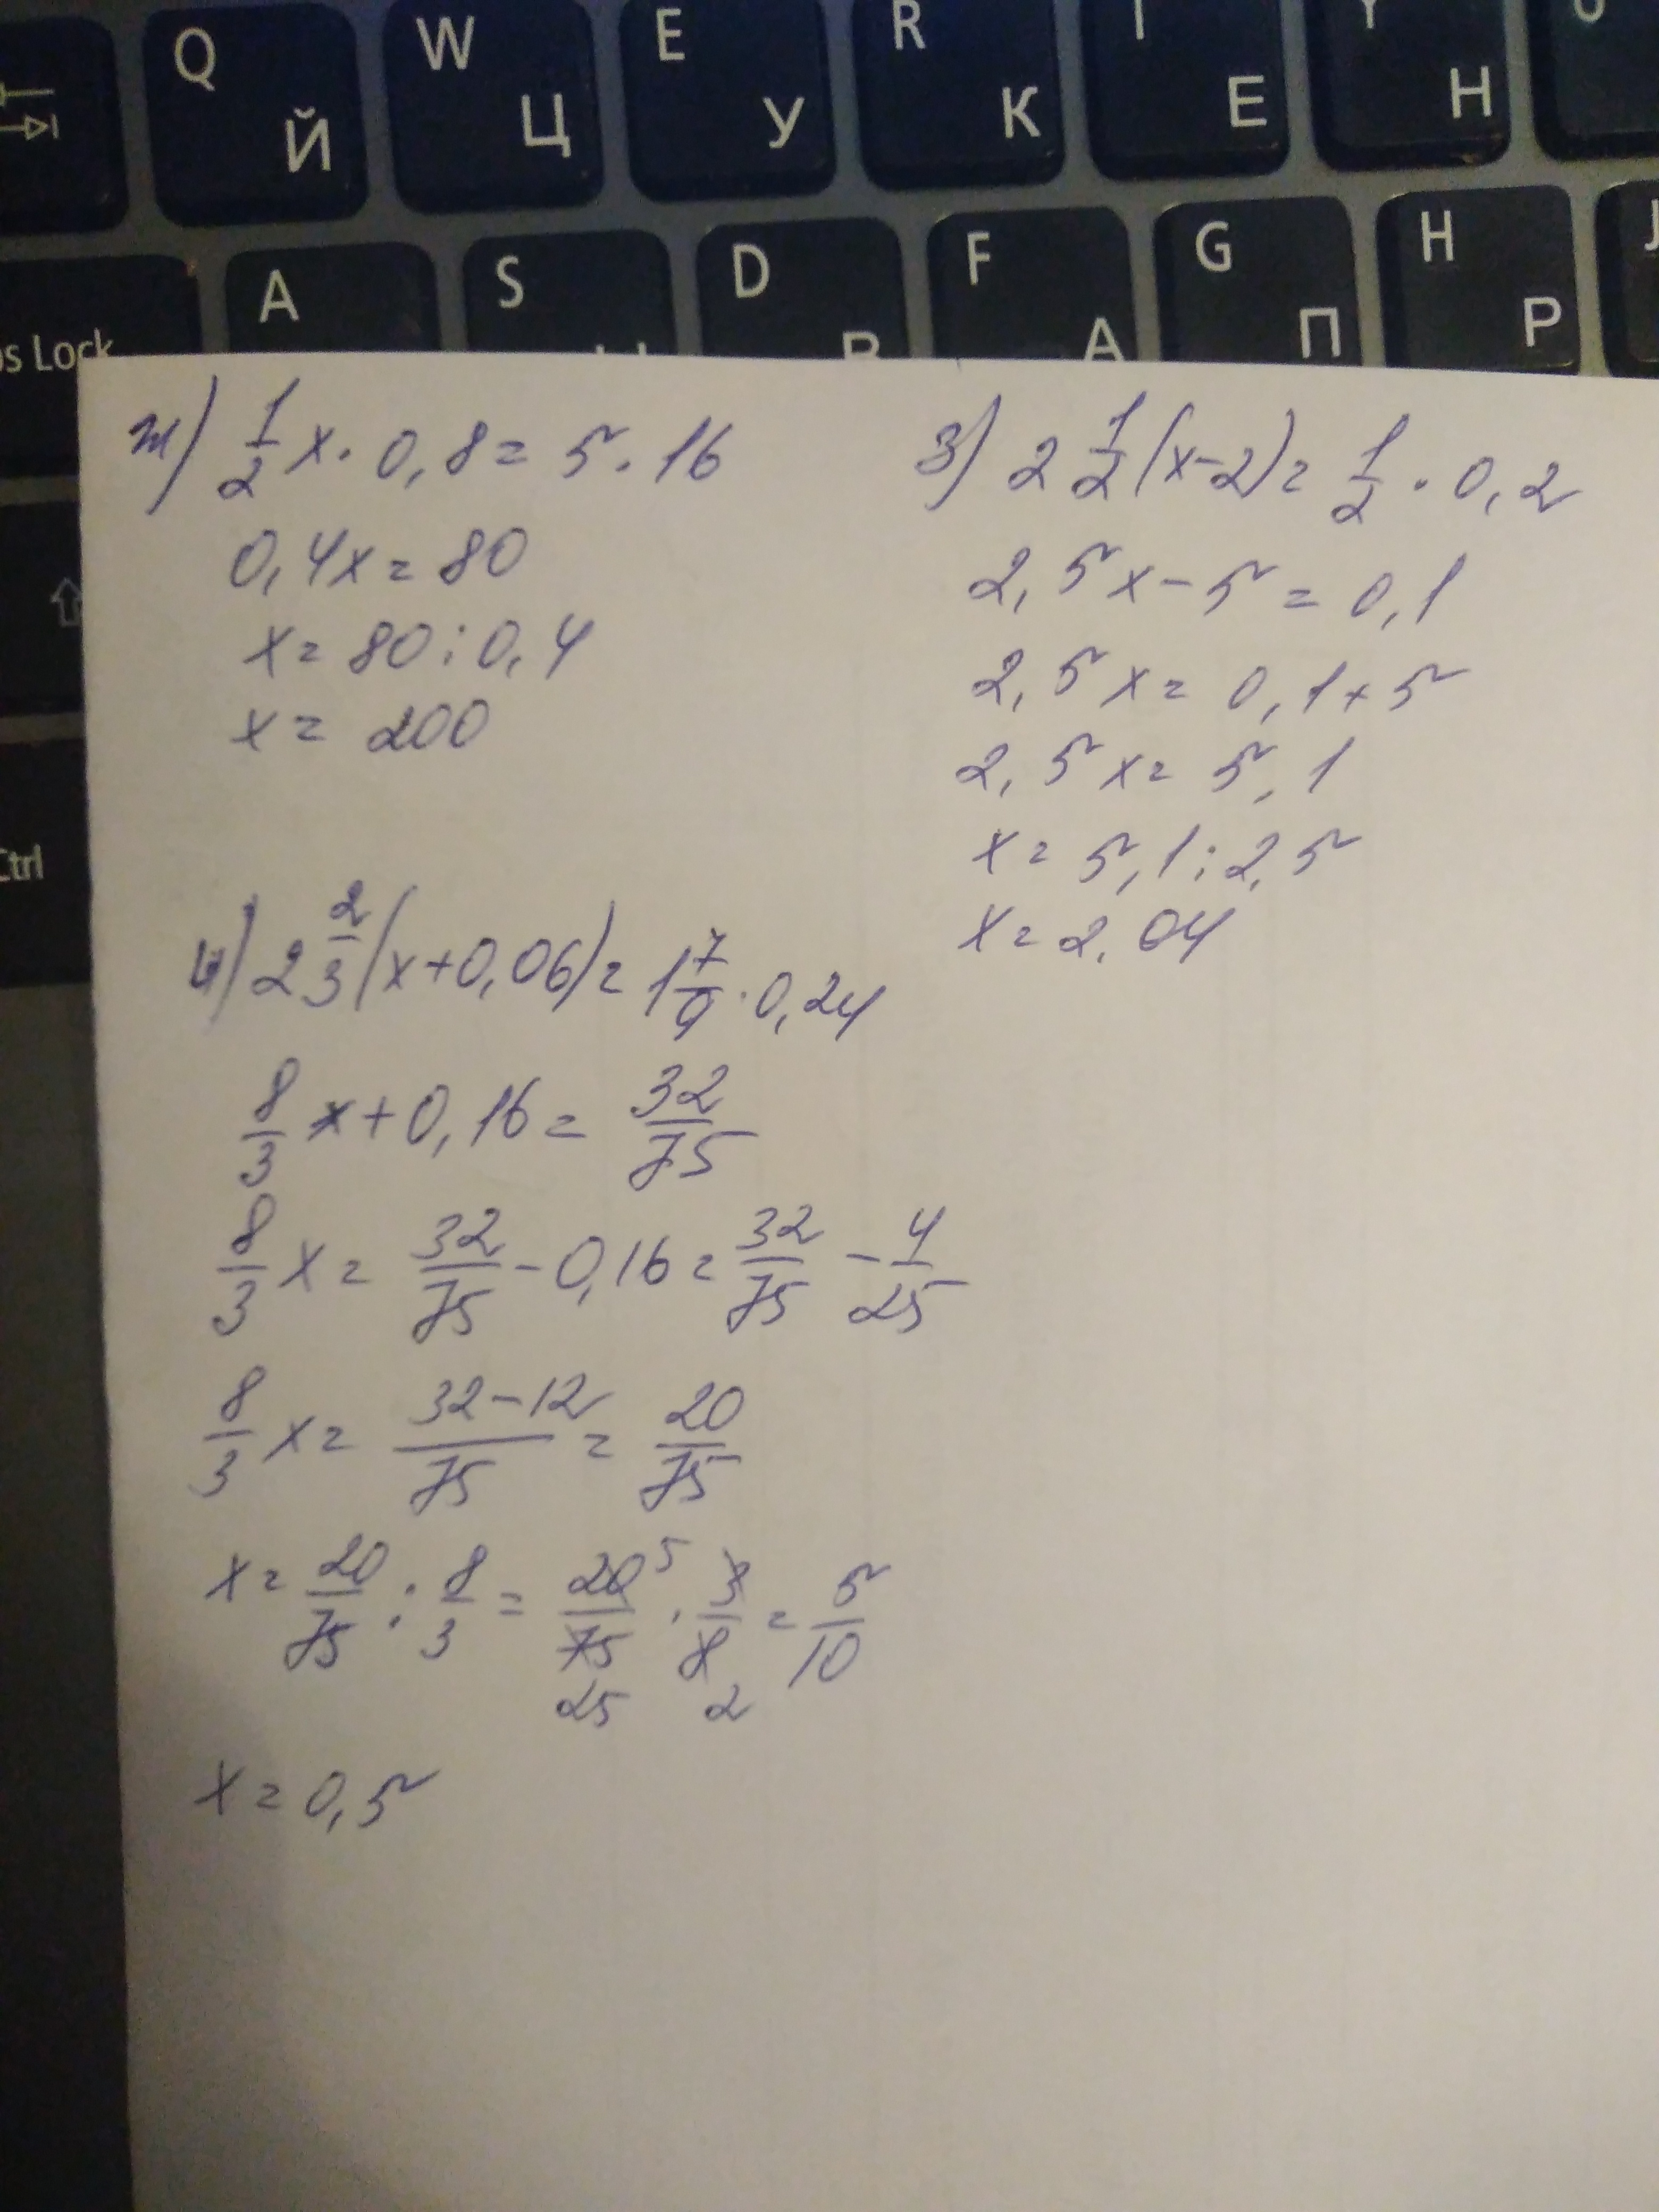 Q W E R T Y U
Й Ц У К Е Н
A S D F G H J
В А П Р
os Lock
Ctrl
ж) 1/2 x · 0,8 = 5 · 16
0,4x = 80
x = 80 : 0,4
x = 200
з) 2 1/2 (x-2) = 1/2 · 0,2
2,5x - 5 = 0,1
2,5x = 0,1 + 5
2,5x = 5,1
x = 5,1 : 2,5
x = 2.04
и) 2 2/3 (x+0,06) = 1 7/9 · 0,24
8/3 x + 0,16 = 32/75
8/3 x = 32/75 - 0,16 = 32/75 - 4/25
8/3 x = (32-12)/75 = 20/75
x = 20/75 : 8/3 = 20 5/75 25 · 3/8 2 = 5/10
x = 0,5